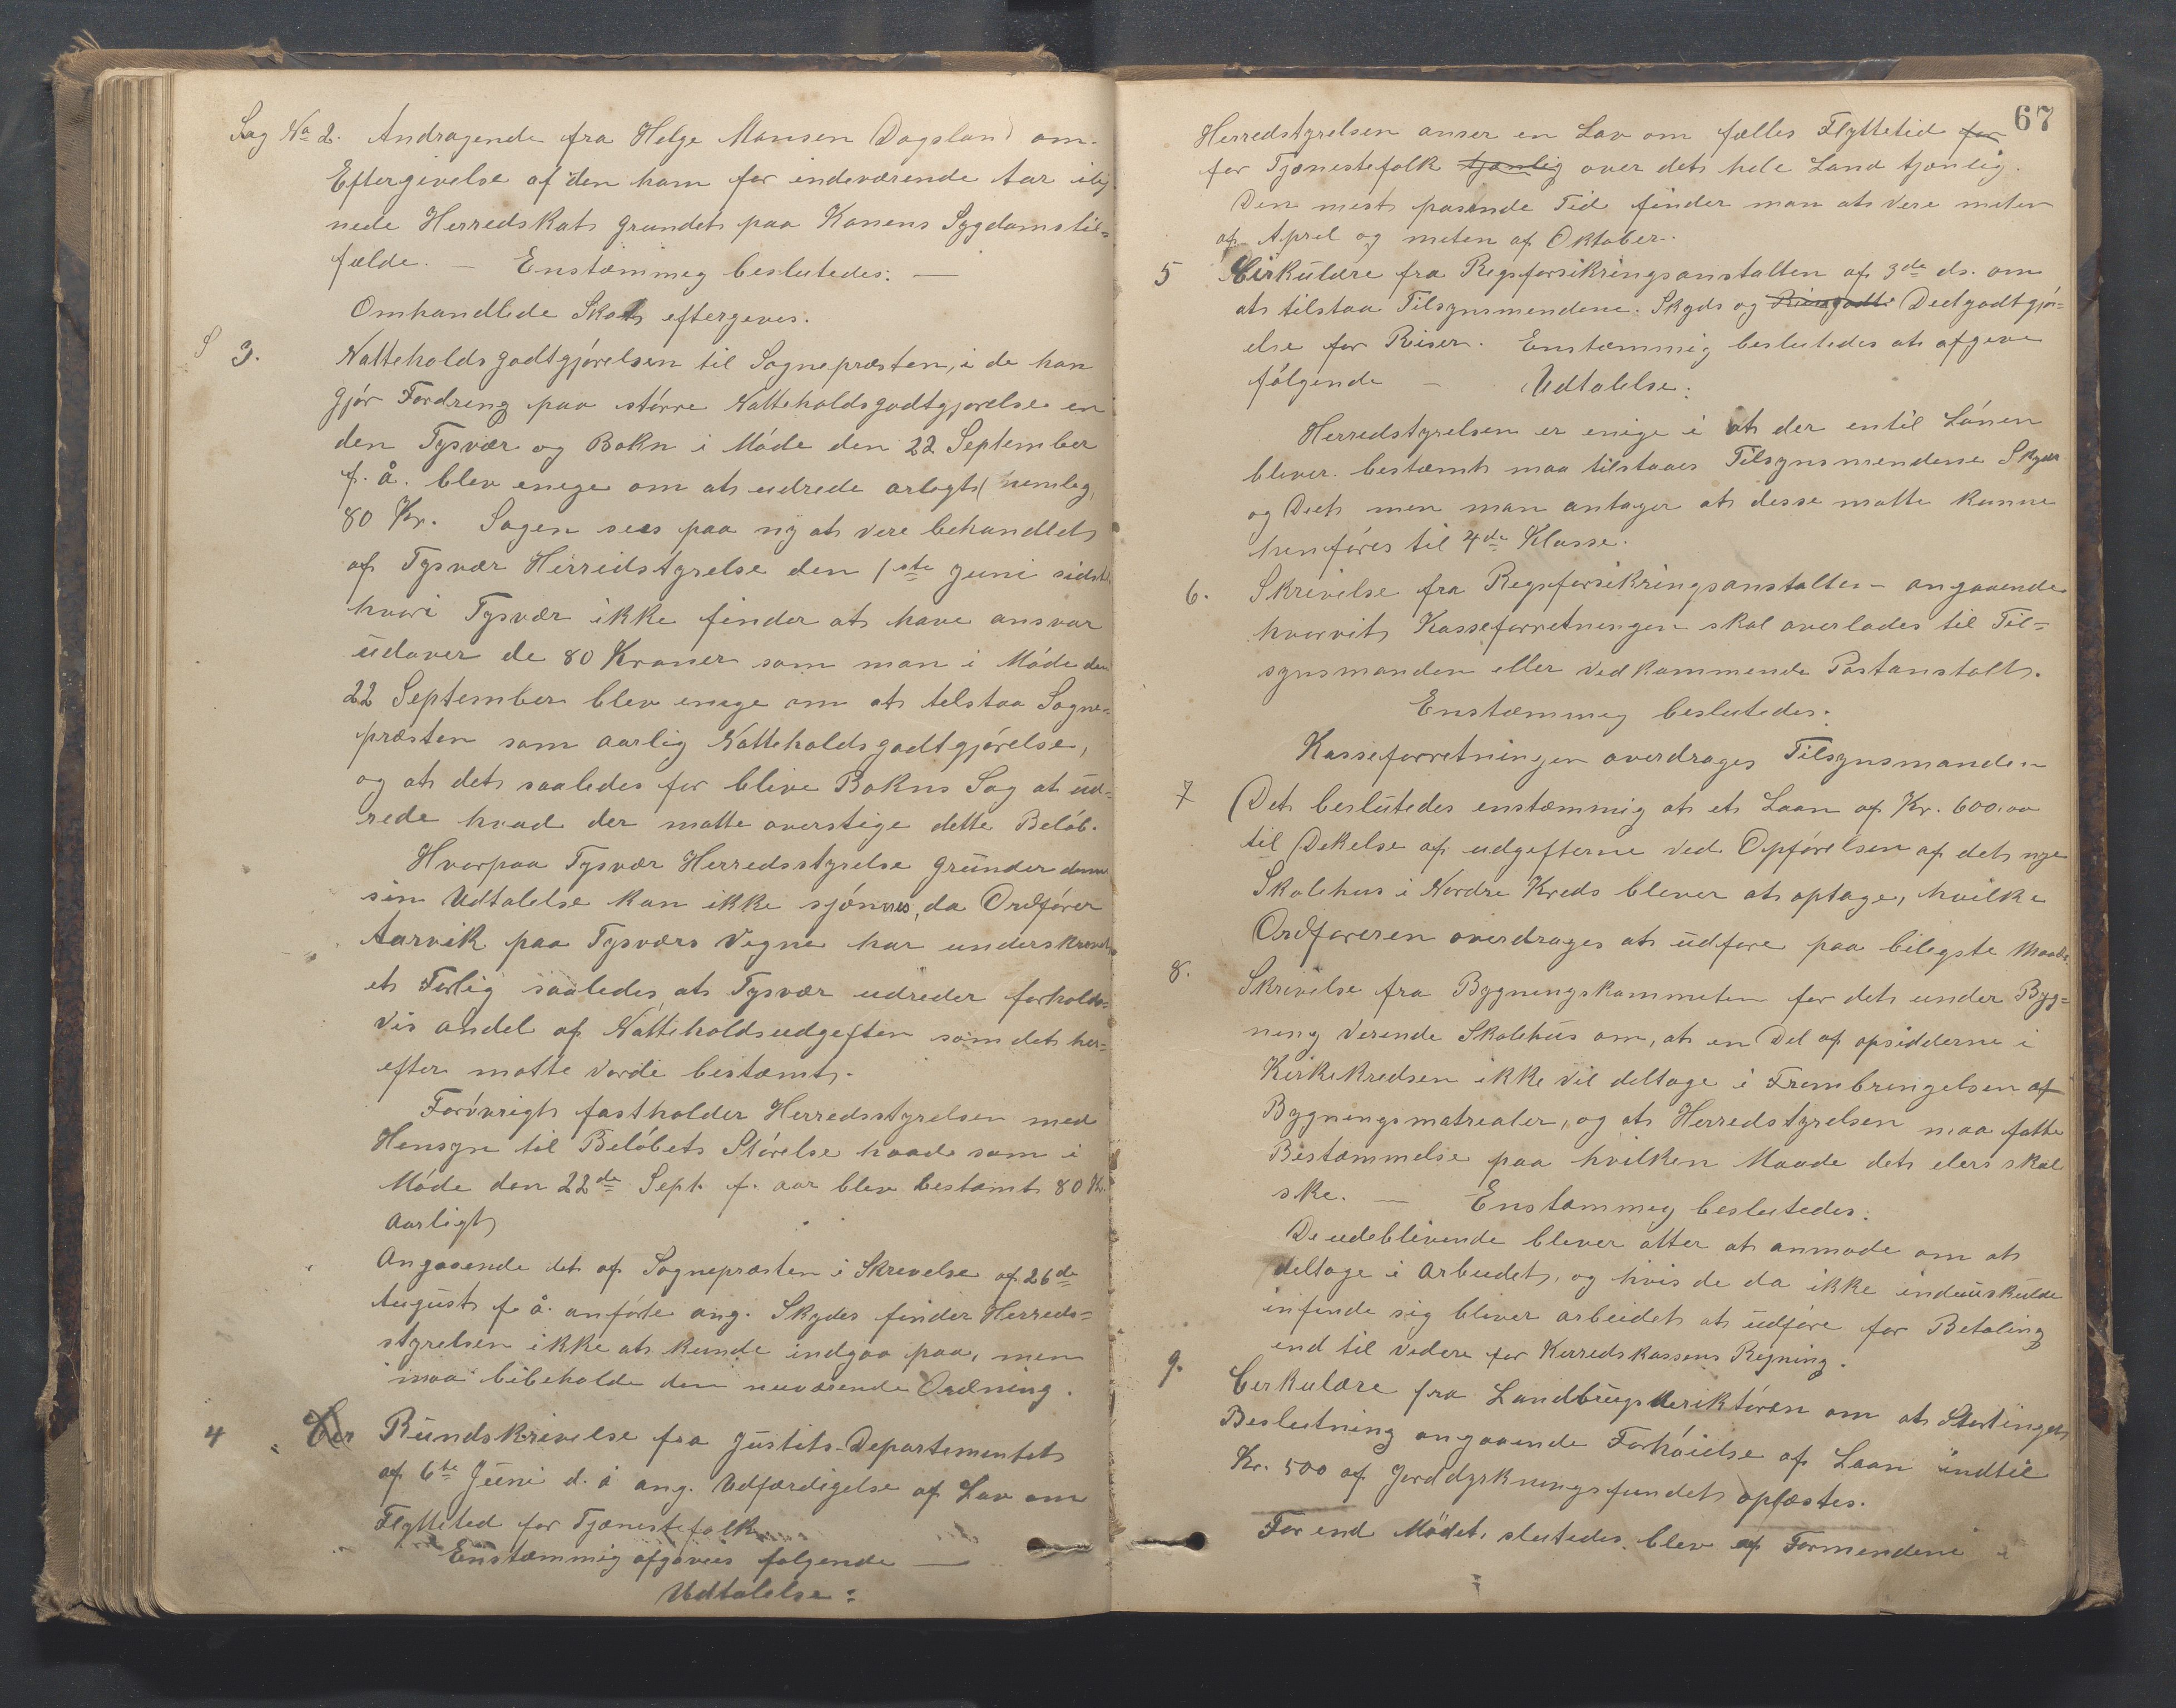 Sag No 2. Andragende fra Helge Mansen Dagsland om
Eftergivelse af den ham for indeværende Aar ilig
nede Herredskat grundet paa Konens Sygdomstil=
fælde. — Enstæmmeg beslutedes: —
Omhandlede Skat eftergeves.
3. Natteholdsgodtgjórelsen til Sognepræsten, i de han
gjór Fordreng paa stórre Natteholdsgodtgjorelse en
den Tysvær og Bokn i Móde den 22 September
f. å. blev enege om at udrede arlegt (nemleg
80 Kr. Sagen sees paa ny at vere behandlet
af Tysvær Herredstyrelse den 1ste Juni sidst
hvori Tysvær ikke finder at have ansvar
udover de 80 Kroner som man i Móde den
22 September blev enege om at telstaa Sogne=
præsten som aarlig Natteholdsgodtgjórelse,
og at det saaledes for blive Bokns Sag at ud=
rede hvad der matte overstige dette Belób.
Hvorpaa Tysvær Herredsstyrelse grunder denne
sin Udtalelse kan ikke sjónnes, da Ordfórer
Aarvik paa Tysværs Vegne har underskrevet
et Forlig saaledes, at Tysvær udreder forholds=
vis andel af Natteholdsudgeften som det her=
efter matte vorde bestæmt.
Forövrigt fastholder Herredsstyrelsen med
Hensyn til Belóbets Stórelse hvad som i
Móde den 22de Sept. f. aar blev bestæmt 80 Kr.
Aarligt
Angaaende det af Sognepræsten i Skrevelse af 26de
August f. å. anfórte ang. Skydes finder Herreds=
styrelsen ikke at kunde indgaa paa, men
maa bibeholde den nuværende Ordning.
4 Cer Rundskrivelse fra Justits-Departementet
af 6te Juni d. å ang. Udfærdigelse af Lov om
Flytteted for Tjænestefolk
Enstæmmig afgaves folgende —
Udtalelse:
67
Herredstyrelsen anser en Lov om fælles Flyttetid for
for Tjænestefolk tjænlig over det hele Land tjænlig.
Den mest pasende Tid finder man at vere meten
af April og meten af Oktober.
5 Cirkulære fra Regsforsikringsanstalten af 3de ds. om
at tilstaa Tilsynsmendene Skyds og Dietgodtgjór=
else for Reiser. Enstæmmig beslutedes at afgeve
fólgende — Udtalelse:
Herredstyrelsen er enige i at der entil Lónen
blever bestæmt maa tilstaaes Tilsynsmendene Skyds
og Diet men man antager at desse matte kunne
henfóres til 4de Klasse.
6. Skrivelse fra Regsforsikringsanstalten angaaende
hvorvit Kasseforretningen skal overlades til Til=
synsmanden eller vedkommende Postanstalt.
Enstæmmeg beslutedes:
Kasseforretningen overdrages Tilsynsmanden
7 Det beslutedes enstæmmig at et Laan af Kr. 600.00
til Dekelse af udgefterne ved Opfórelsen af det nye
Skolehus i Nordre Kreds blever at optage, hvilke
Ordforeren overdrages at udfore paa bilegste Maade.
8. Skrivelse fra Bygningskommeten for det under Byg=
neng verende Skolehus om, at en Del af opsidderne i
Kirkekredsen ikke vil deltage i Frembrengelsen af
Bygnengsmatrealer, og at Herredstyrelsen maa fatte
Bestæmmelse paa hvilken Maade det elers skal
ske. — Enstæmmeg beslutedes:
De udeblivende blever atter at anmode om at
deltage i Arbeidet, og hvis de da ikke
infinde sig bliver arbeidet at udfóre for Betaling
end til vedere for Herredskassens Regning.
9. Cerkulære fra Landbrugsderiktóren om at Stortingets
Beslutning angaaende Forhóielse af Laan indtil
Kr. 500 af Jorddyrkningsfundet oplæstes.
For end Mödet slutedes blev af Formendene